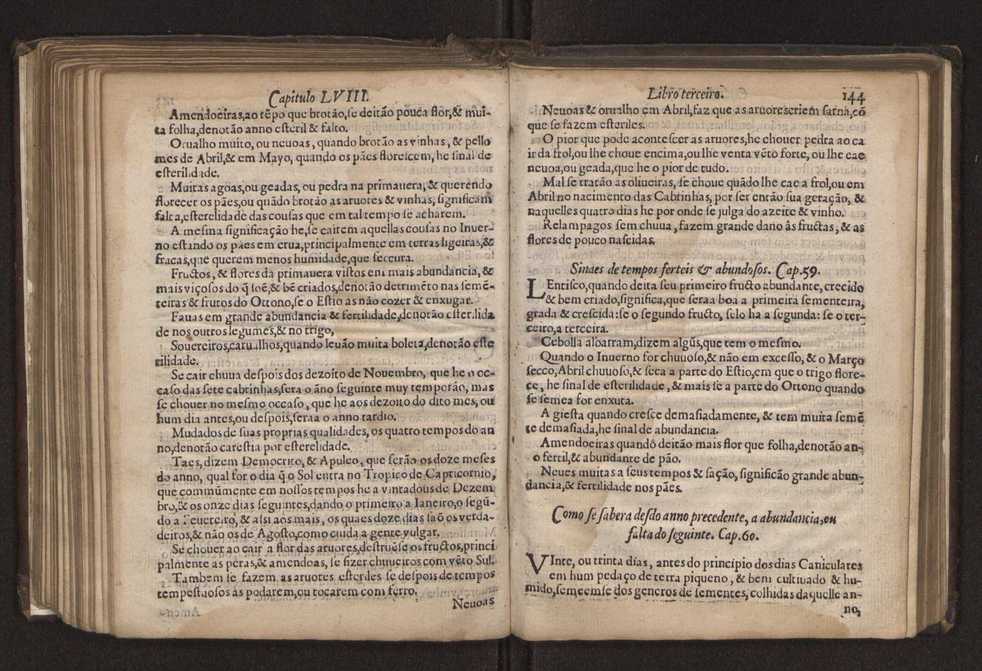 Capitulo LVIII.
Amendoeiras,ao tẽpo que brotão,se deitão pouca flor,& mui-
ta folha,denotão anno esteril & falto.
Orualho muito, ou neuoas, quando brotão as vinhas, & pello
mes de Abril,& em Mayo, quando os pães florecem, he sinal de
esterilidade.
Muitas agoas,ou geadas, ou pedra na primauera, & querendo
florecer os pães,ou quãdo brotão as aruores & vinhas, significam
falta,esterelidade das cousas que em tal tempo se acharem.
A mesma significação he,se cairem aquellas cousas no Inuer-
no estando os pães em erua,principalmente em terras ligeiras,&
fracas,que querem menos humidade,que seccura.
Fructos, & flores da primauera vistos em mais abundancia, &
mais viçosos do q̃ soẽ,& bẽ criados,denotão detrimẽto nas semẽ-
teiras & frutos do Ottono,se o Estio as não cozer & enxugar.
Fauas em grande abundancia & fertilidade,denotão esterilida
de nos outros legumes,& no trigo,
Souereiros,carualhos,quando leuão muita boleta,denotão este
rilidade.
Se cair chuua despois dos dezoito de Nouembro, que he o oc-
caso das sete cabrinhas,sera o ãno seguinte muy temporão, mas
se chouer no mesmo occaso, que he aos dezoito do dito mes, ou
hum dia antes,ou despois,seraa o anno tardio.
Mudados de suas proprias qualidades, os quatro tempos do an
no,denotão carestia por esterelidade.
Taes, dizem Democrito, & Apuleo, que serão os doze meses
do anno, qual for o dia q̃ o Sol entra no Tropico de Capricornio,
que commũmente em nossos tempos he a vintadous de Dezem
bro,& os onze dias seguintes,dando o primeiro a Ianeiro,o segũ-
do a Feuereiro, & assi aos mais, os quaes doze dias saõ os verda-
deiros,& não os de Agosto,como cuida a gente vulgar.
Se chouer ao cair a flor das aruores,destruẽse os fructos,princi
palmente as peras,& amendoas, se fizer chuueiros com vẽto Sul.
Tambem se fazem as aruores esteriles se despois de tempos
tempestuosos as podarem,ou tocarem com ferro,
Neuoas
Libro terceiro.
144
Neuoas & orualho em Abril,faz que as aruores criem sarna,cõ
que se fazem esteriles.
O pior que pode acontescer as aruores,he chouer pedra ao ca
ir da frol,ou lhe choue encima,ou lhe venta vẽto forte, ou lhe cae
neuoa,ou geada,que he o pior de tudo.
Mal se tratão as oliueiras, se choue quãdo lhe cae a frol,ou em
Abril no nacimento das Cabrinhas, por ser então sua geração, &
naquelles quatro dias he por onde se julga do azeite & vinho.
Relampagos sem chuua, fazem grande dano âs fructas, & as
flores de pouco nascidas.
Sinaes de tempos ferteis & abundosos. Cap.59.
LEntisco,quando deita seu primeiro fructo abundante, crecido
& bem criado,significa,que seraa boa a primeira sementeira,
grada & crescida: se o segundo fructo, selo ha a segunda: se o ter-
ceiro,a terceira.
Cebolla albarram,dizem algũs,que tem o mesmo.
Quando o Inuerno for chuuoso,& não em excesso, & o Março
secco,Abril chuuoso,& seca a parte do Estio,em que o trigo flore-
ce, he sinal de esterilidade, & mais se a parte do Ottono quando
se semea for enxuta.
A giesta quando cresce demasiadamente, & tem muita semẽ
te demasiada,he sinal de abundancia.
Amendoeiras quando deitão mais flor que folha,denotão an-
o fertil,& abundante de pão.
Neues muitas a seus tempos & sação, significão grande abun-
dancia,& fertilidade nos pães.
Como se sabera desdo anno precedente, a abundancia,ou
falta do seguinte. Cap.60.
VInte, ou trinta días, antes do principio dos dias Caniculares
em hum pedaço de terra piqueno, & bem cultiuado & hu-
mido,semeemse dos generos de sementes, colhidas daquelle an-
no,